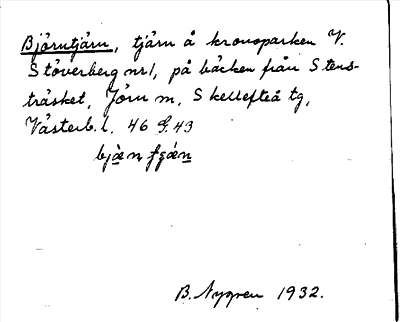 Björntjärn, tjärn å kronoparken V.
Stöverberg nr 1, på bäcken från Stens-
träsket, Jörn m, Skellefteå tg,
Västerb. l. 46 G. 43
bjæ̀n
B. Nygren 1932.